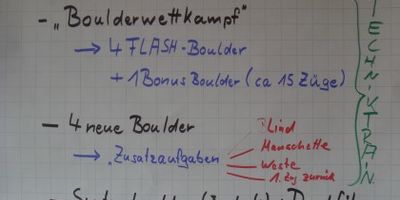 - „Boulderwettkampf"
→ 4 FLASH-Boulder
+ 1 Bonus Boulder (ca 15 Züge)
- 4 neue Boulder
→ Zusatzaufgaben
Blind
Manschette
Weste
1. Zug zurück